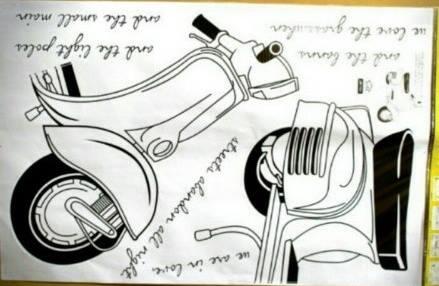 we are in love,
streets abandon all night
and the barns
and the light poles
we love the grass when
and the small main